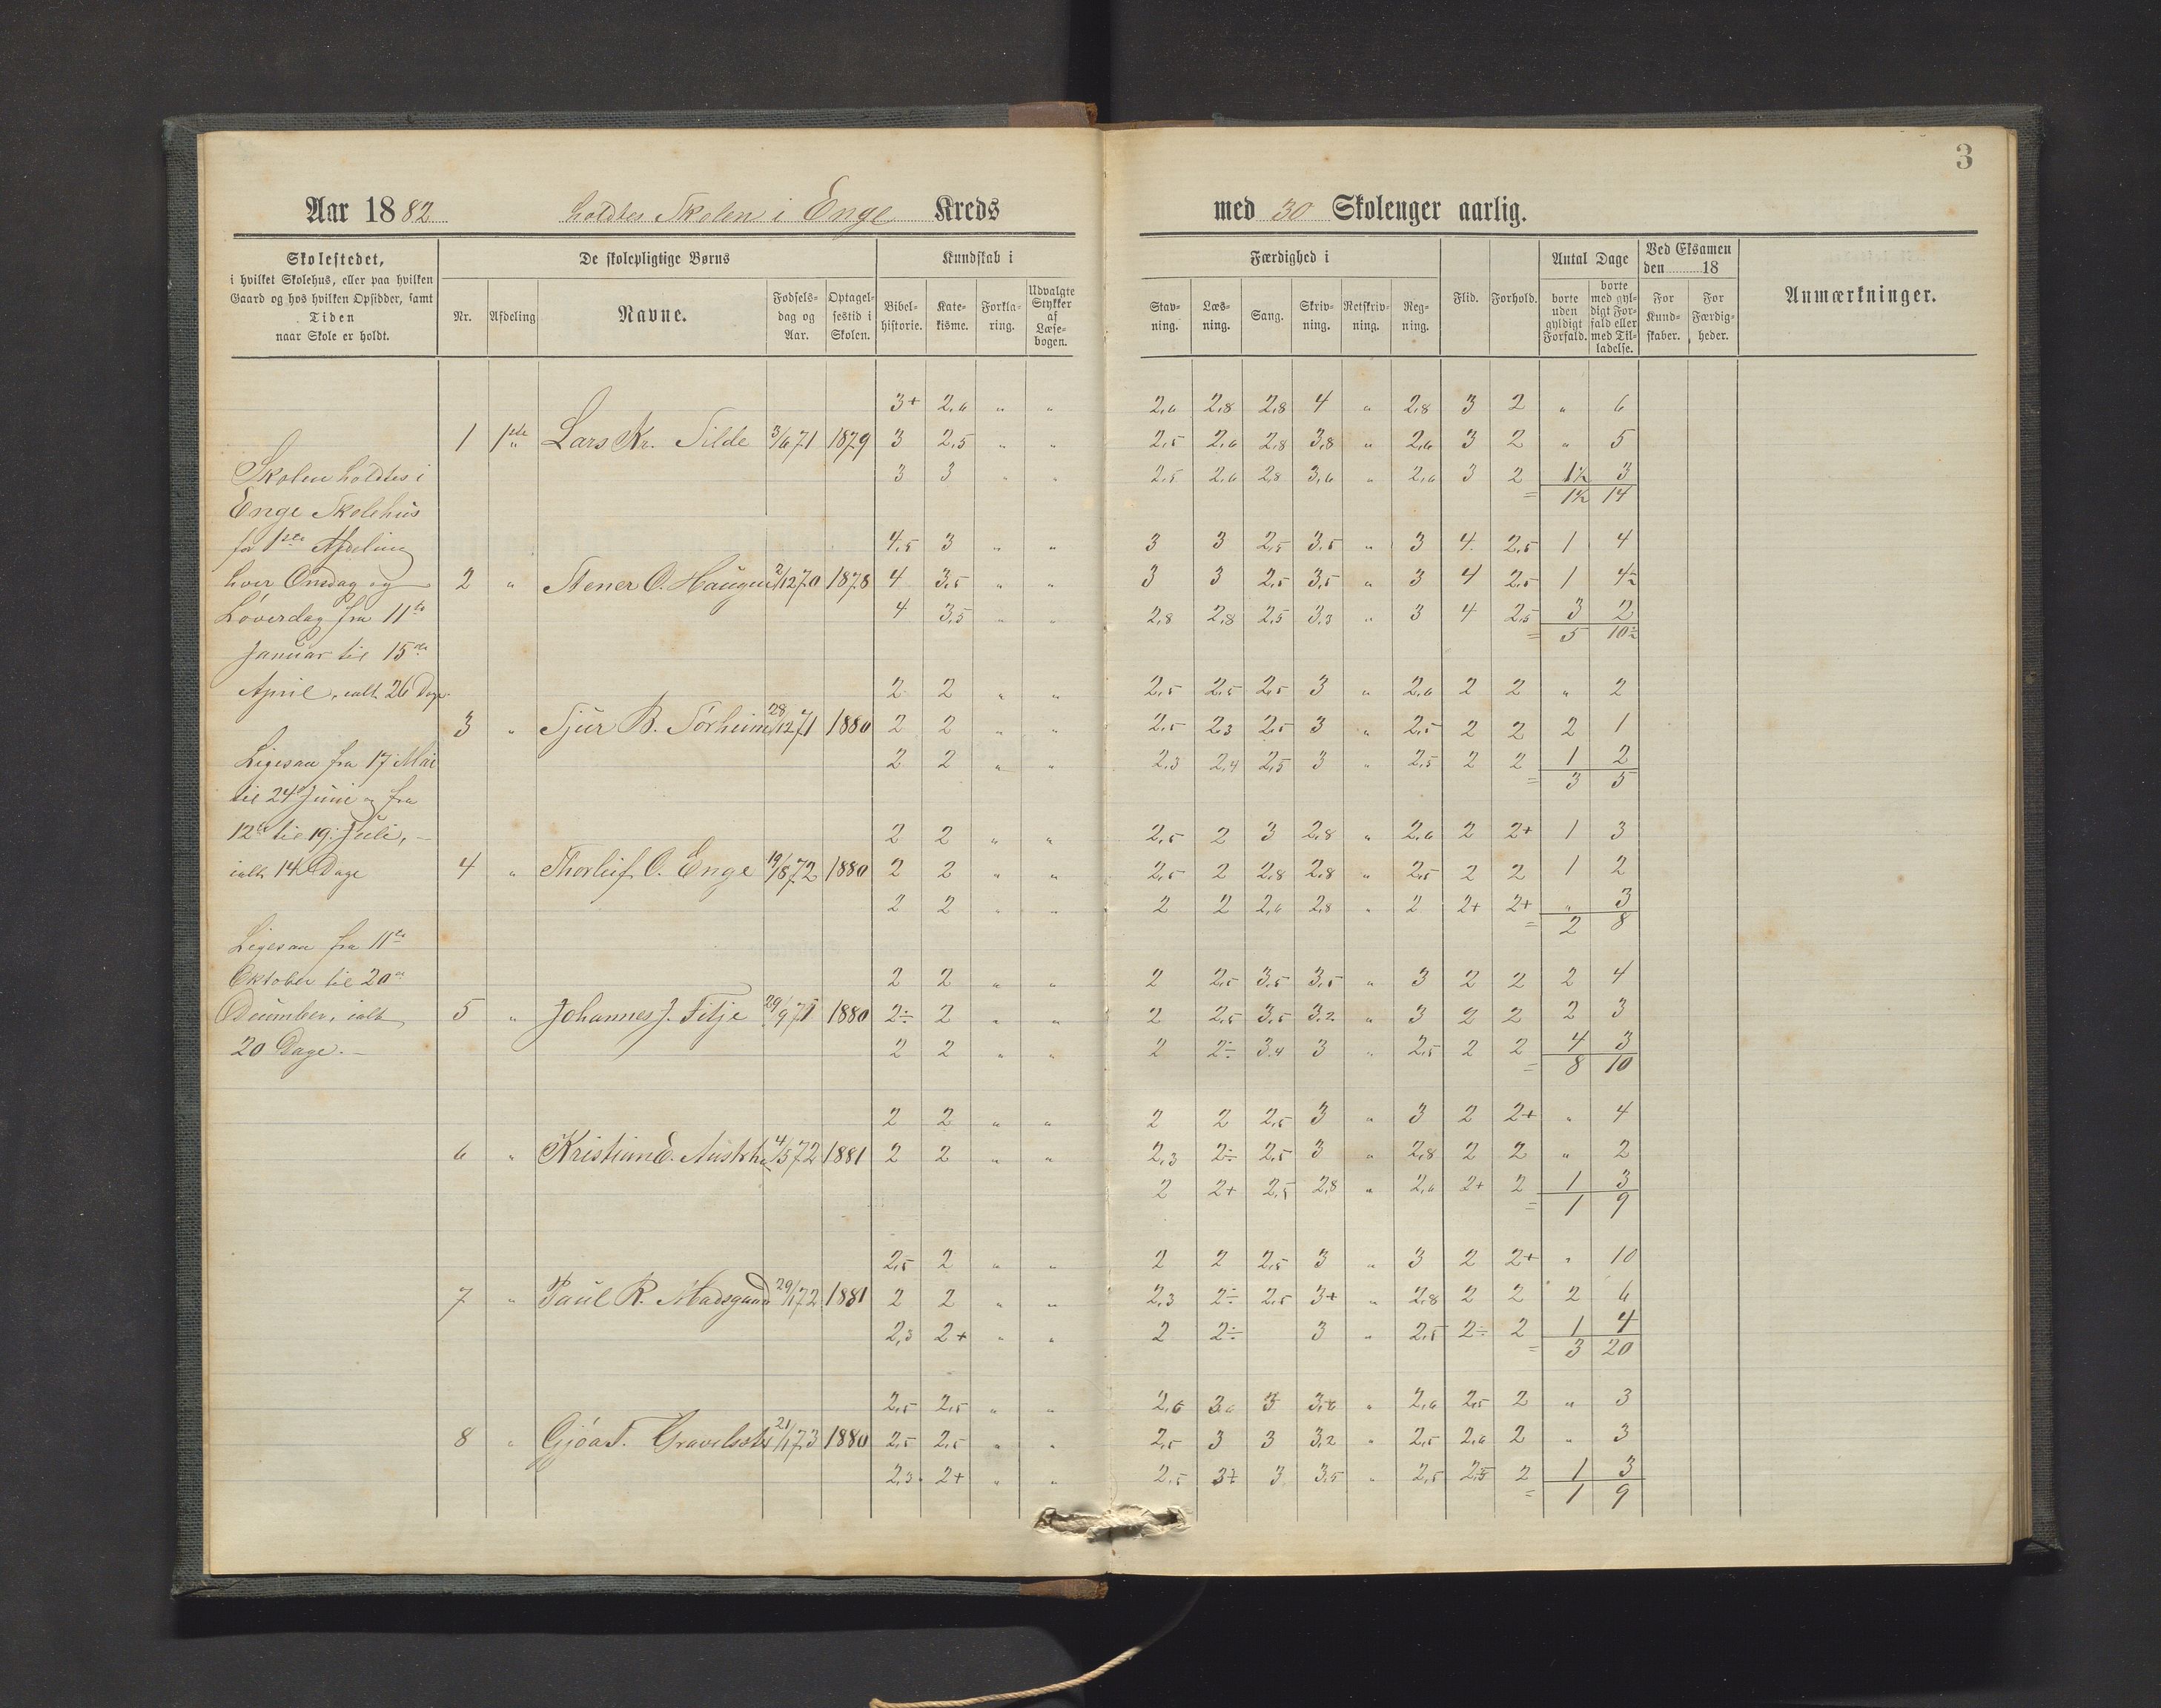 3
Aar 1882 holdtes Skolen i Enge Kreds med 30 Skolenger aarlig.
Skolestedet,
i hvilket Skolehus, eller paa hvilken
Gaard og hos hvilken Opsidder, samt
Tiden
naar Skole er holdt.
De skolepligtige Børns
Nr. Afdeling Navne. Fødsels-dag og Aar. Optagelsestid i Skolen.
Kundskab i
Bibelhistorie. Katekisme. Forklaring. Udvalgte Stykker af Læsebogen.
Færdighed i
Stavning. Læsning. Sang. Skrivning. Retskrivning. Regning.
Flid. Forhold.
Antal Dage
borte uden gyldigt Forfald. borte med gyldigt Forfald eller med Tilladelse.
Ved Eksamen den 18
For Kundskaber. For Færdigheder.
Anmærkninger.
Skolen holdtes i
Enge Skolehus
for 1ste Afdeling
hver Onsdag og
Løverdag fra 11te
Januar til 15de
April, ialt 26 Dage.
Ligesaa fra 17 Mai
til 24 Juni og fra
12te til 19 Juli, –
ialt 14 Dage
Ligesaa fra 11te
Oktober til 20de
December, ialt
20 Dage. –
3+ 2,6 " " 2,6 2,8 2,8 4 " 2,8 3 2 " 6
1 1ste Lars Kr. Tilde 3/6 71 1879 3 2,5 " " 2,5 2,6 2,8 3,8 " 2,6 3 2 " 5
3 3 " " 2,5 2,6 2,8 3,6 " 2,6 3 2 1½ 3
= 1½ 14
4,5 3 " " 3 3 2,5 3,5 " 3 4 2,5 1 4
2 " Stener O. Haugen 2/12 70 1878 4 3,5 " " 3 3 2,5 3,5 " 3 4 2,5 1 4½
4 3,5 " " 2,8 2,8 2,5 3,3 " 3 4 2,5 3 2
= 5 10½
2 2 " " 2,5 2,5 2,5 3 " 2,6 2 2 " 2
3 " Sjur B. Tørheim 28/12 71 1880 2 2 " " 2,5 2,3 2,5 3 " 2,5 2 2 2 1
2 2 " " 2,3 2,4 2,5 3 " 2,5 2 2 1 2
= 3 5
2 2 " " 2,5 2 3 2,8 " 2,6 2 2+ 1 3
4 " Thorleif O. Enge 19/8 72 1880 2 2 " " 2,5 2 2,8 2,8 " 2,5 2 2 1 2
2 2 " " 2 2 2,6 2,8 " 2 2+ 2+ " 3
= 2 8
2 2 " " 2 2,5 3,5 3,5 " 3 2 2 2 4
5 " Johannes J. Fitje 29/9 71 1880 2÷ 2 " " 2 2,5 3,5 3,2 " 3 2 2 2 3
2 2 " " 2 2÷ 3,4 3 " 2,5 2 2 4 3
= 8 10
2 2 " " 2 2 2,5 3 " 3 2 2+ " 4
6 " Kristian 4/5 72 1881 2 2 " " 2,3 2÷ 2,5 3 " 2,8 2 2 " 2
2 2+ 2,5 2,8 " 2,6 2+ 2 1 3
= 1 9
2,5 2 " " 2 2 2,5 3 " 3 2 2+ " 10
7 " Paul R. Madsgaard 29/1 72 1881 2 2 " " 2,3 2÷ 2,5 3+ " 2,8 2 2 2 6
2,3 2+ " " 2 2÷ 3 " 2,5 2÷ 2 1 4
= 3 20
2,5 2,5 " " 2,6 3 3 3,6 " 2,6 2,5 2 " 3
8 " Gjøa T. 21/1 73 1880 2,5 2,5 " " 2,5 3 3 3,2 " 2,5 2,6 2 " 3
2,3 2+ " " 2,5 3+ 3 3,5 " 2,5 2,5 2 1 3
= 1 9